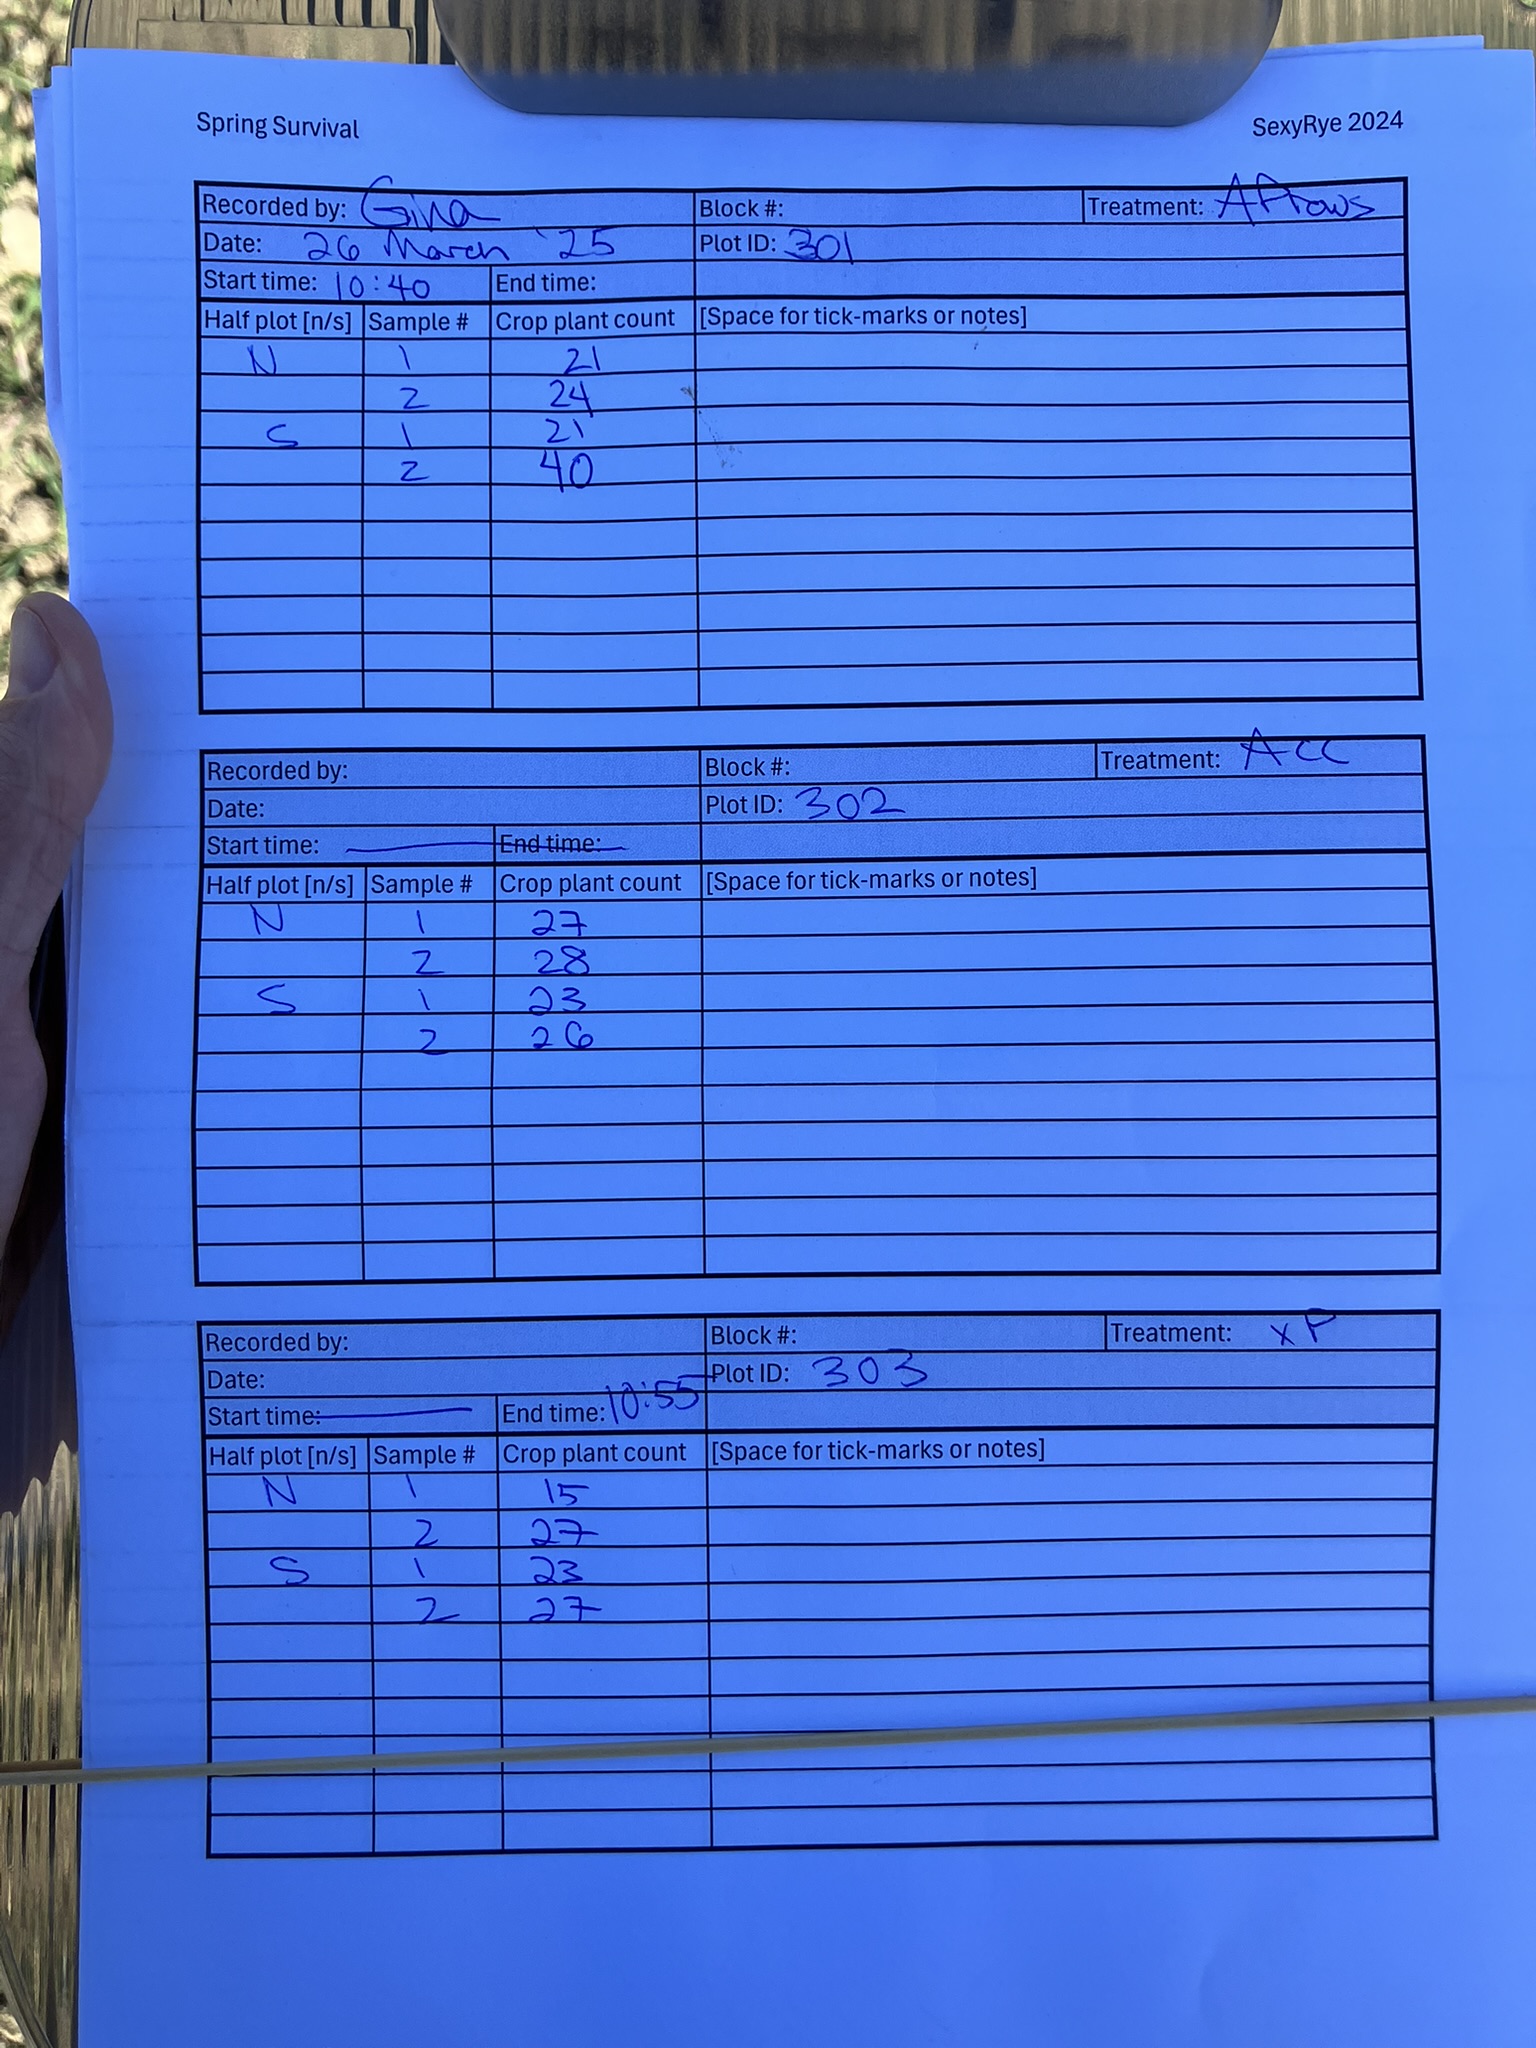 Spring Survival SexyRye 2024
Recorded by: Gina Block #: Treatment:
Date: 26 March '25 Plot ID: 301
Start time: 10:40 End time:
Half plot [n/s] Sample # Crop plant count [Space for tick-marks or notes]
N 1 21
2 24
S 1 21
2 40
Recorded by: Block #: Treatment: ACC
Date: Plot ID: 302
Start time: End time:
Half plot [n/s] Sample # Crop plant count [Space for tick-marks or notes]
N 1 27
2 28
S 1 23
2 26
Recorded by: Block #: Treatment: XP
Date: Plot ID: 303
Start time: End time: 10:55
Half plot [n/s] Sample # Crop plant count [Space for tick-marks or notes]
N 1 15
2 27
S 1 23
2 27